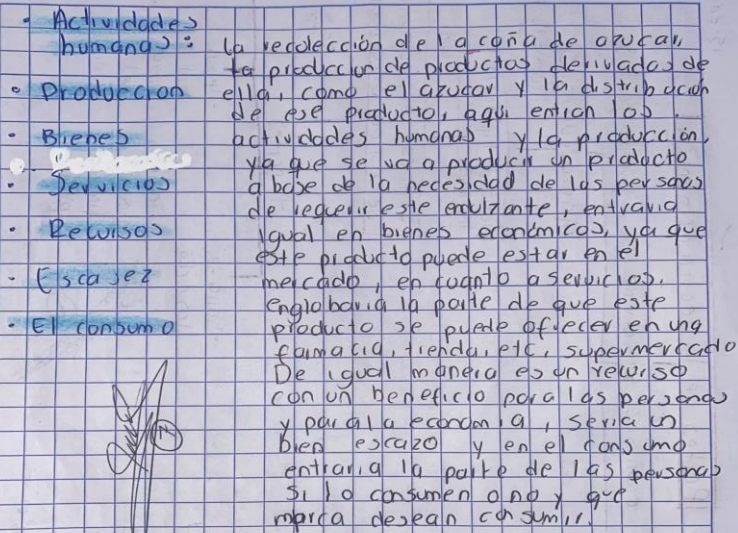 • Actividades
humanas:
• Produccion
• Bienes
• Servicios
• Recursos
- Escasez
• El consumo
la recolección de la caña de azucar,
la produccion de productos derivados de
ella, como el azucar y la distribucion
de ese producto, aqui entran los
actividades humanas y la producción,
ya que se va a producir un producto
a base de la necesidad de las personas
de requerir este endulzante, entraria
igual en bienes económicos, ya que
este producto puede estar en el
mercado, en cuanto a servicios.
englobaria la parte de que este
producto se puede ofrecer en una
farmacia, tienda, etc, supermercado
De igual manera es un recurso
con un beneficio para las personas
y para la economia, seria un
bien escazo y en el consumo
entraria la parte de las personas
si lo consumen o no y que
marca desean consumir.